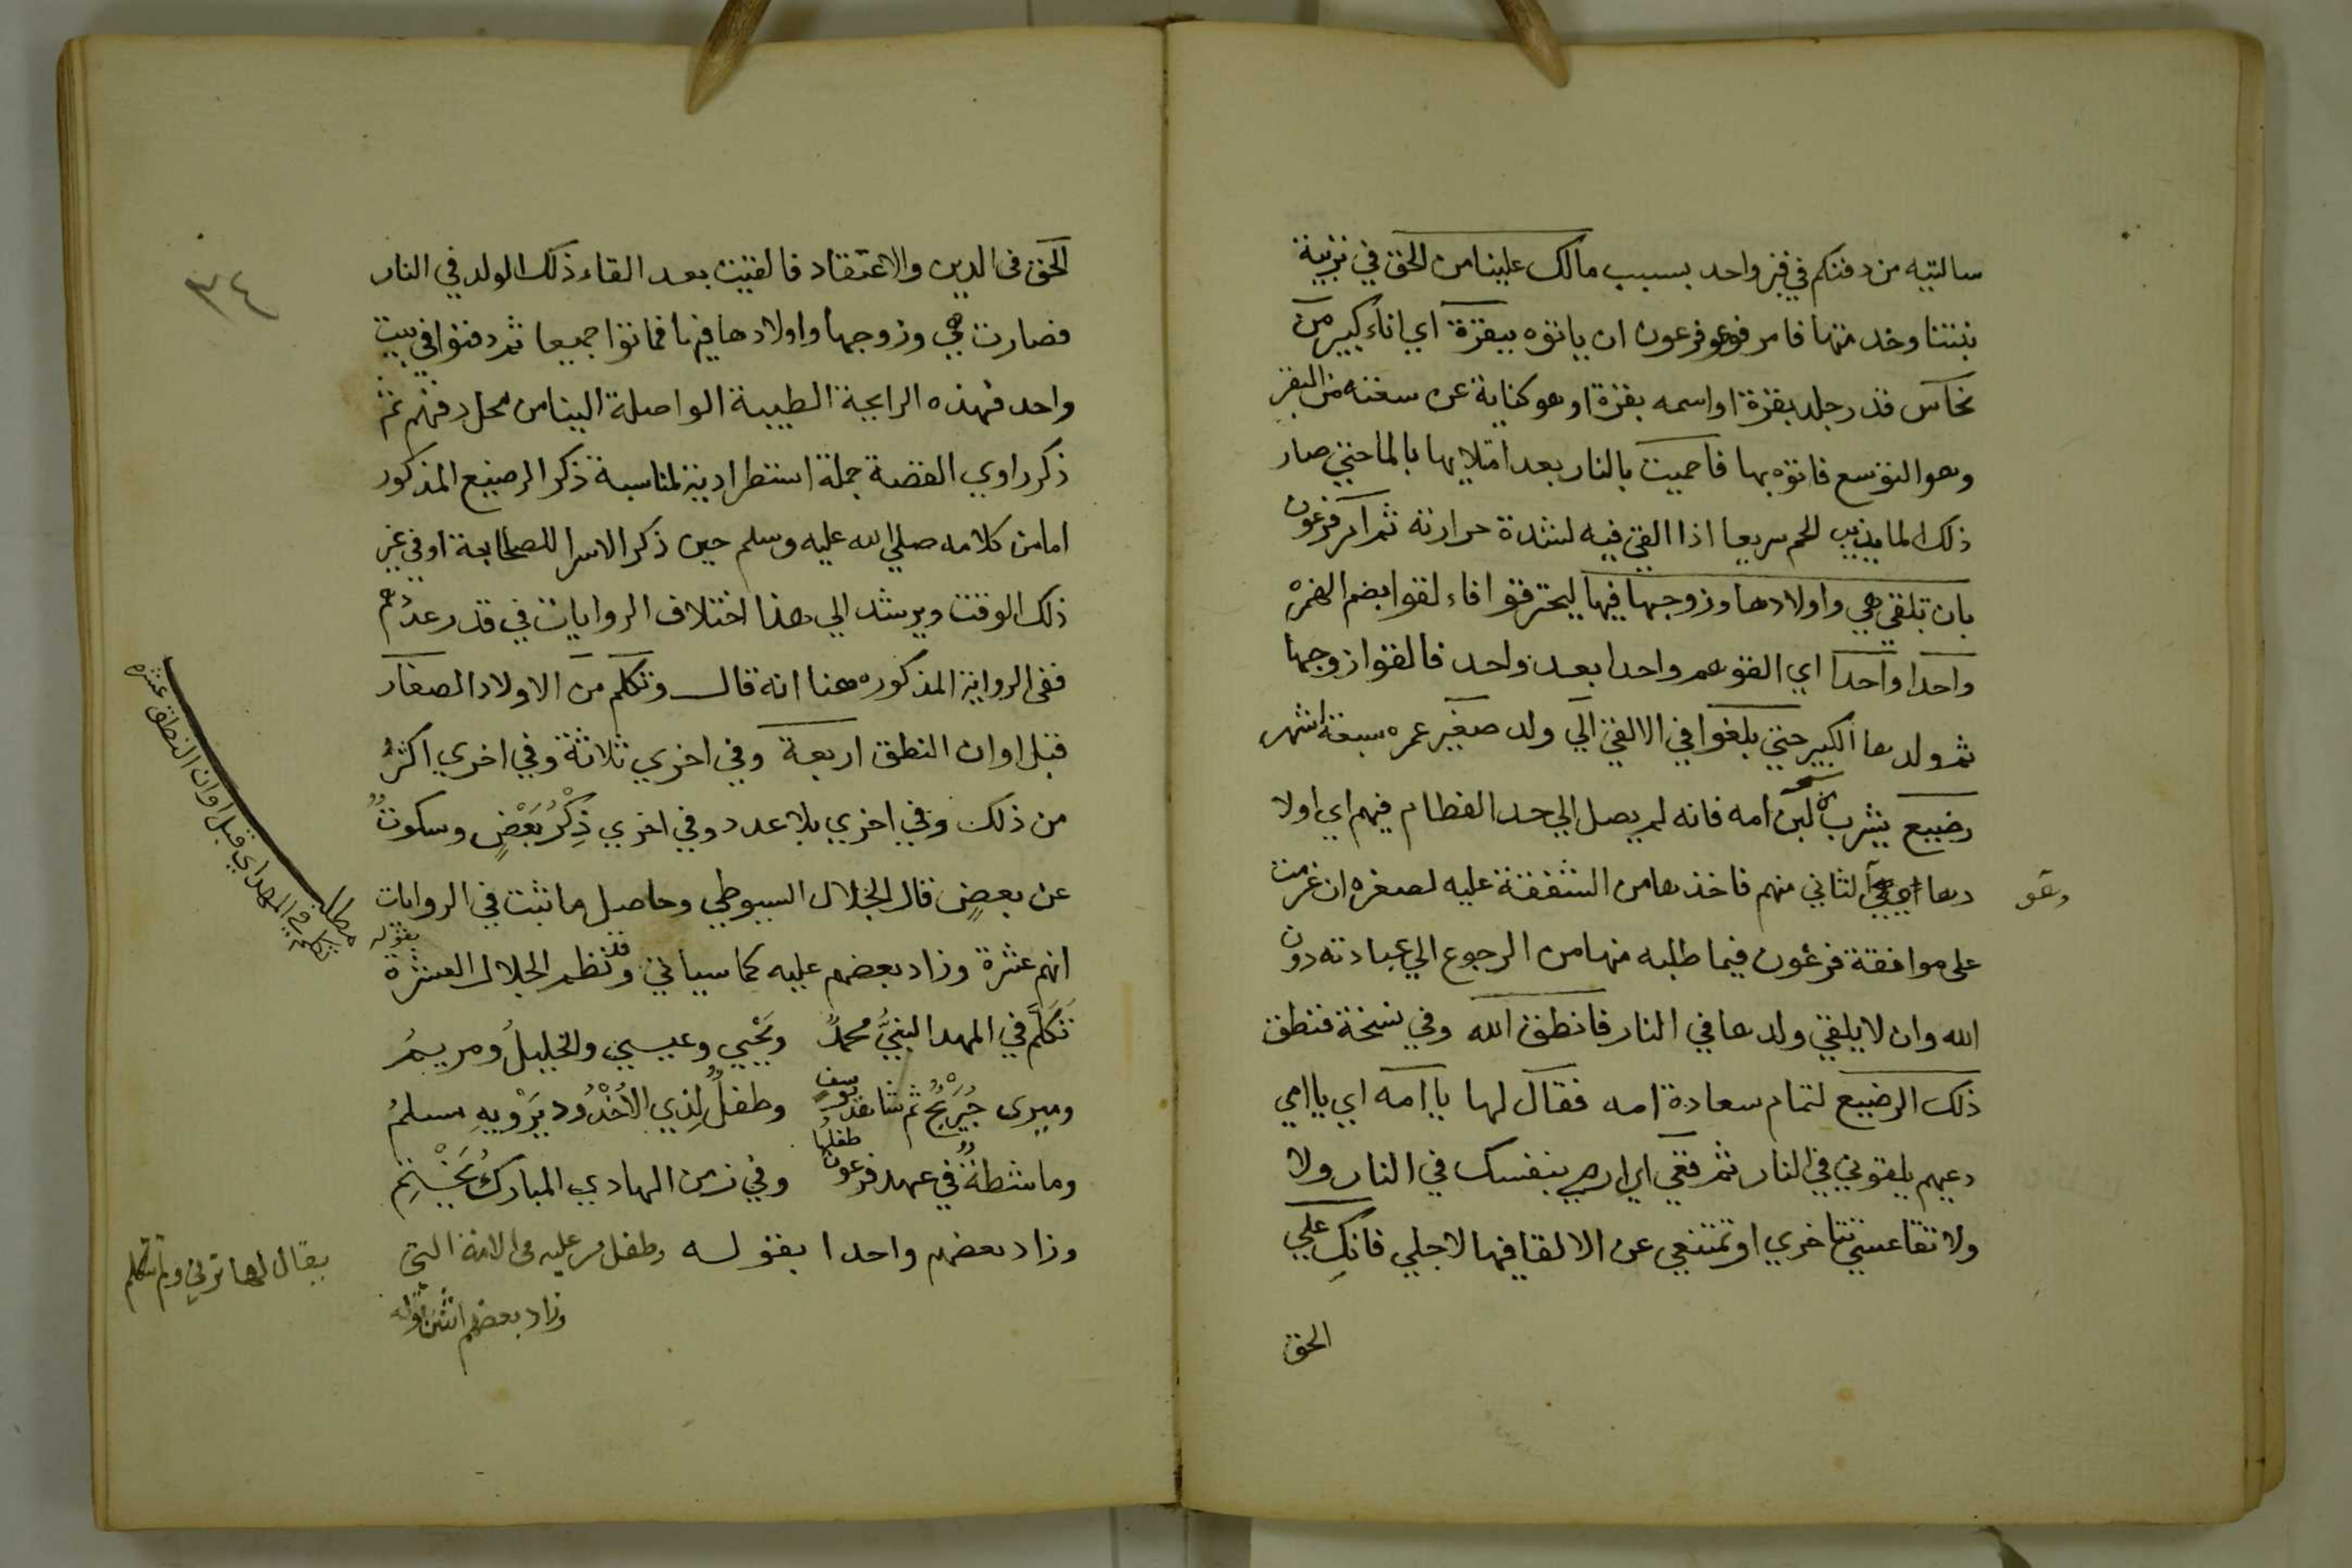 سالتيه من دفنكم في قبر واحد بسبب مالك علينا من الحق في تربية
بنتنا وخد متها فامر فرعون ان ياتوه ببقرة اي اناء كبير من
نحاس قدر جلد بقرة او اسمه بقرة او هو كناية عن سعته من البقر
وهو التوسع فاتوه بها فاحميت بالنار بعد امتلايها بالما حتي صار
ذلك الما يذيب اللحم سريعا اذا القي فيه لشدة حرارته ثم امر فرعون
بان تلقي هي واولادها وزوجها فيها ليحترقوا فاء لقوا بضم الهمزه
واحدا واحدا اي القوهم واحدا بعد واحد فالقوا زوجها
ثم ولدها الكبير حتي بلغوا في الالقي الي ولد صغير عمره سبعة اشهر
رضيع يشرب لبن امه فانه لم يصل الي حد الفطام فيهم اي اولا
دها الثاني منهم فاخذها من الشفقة عليه لصغره ان عزمت
وهو
على موافقة فرعون فيما طلبه منها من الرجوع الي عبادته دون
الله وان لا يلقي ولدها في النار فانطق الله وفي نسخة فنطق
ذلك الرضيع لتمام سعادة امه فقال لها يا امه اي يا امي
دعيهم يلقوني في النار ثم قعي اي ارمي بنفسك في النار ولا
ولا تقاعسي تتاخري او تمتنعي عن الالقا فيها لاجلي فانك علي
الحق
٣٤
الحق في الدين والاعتقاد فالقيت بعد القاء ذلك الولد في النار
فصارت هي وزوجها واولادها فيها فماتوا جميعا ثم دفنوا في بيت
واحد فهذه الرايحة الطيبة الواصلة الينا من محل دفنهم ثم
ذكر راوي القصة جملة استطرادية لمناسبة ذكر الرضيع المذكور
اما من كلامه صلي الله عليه وسلم حين ذكر الاسرا للصحابة او في غير
ذلك الوقت ويرشد الي هذا اختلاف الروايات في قدر عددهم
ففي الرواية المذكوره هنا انه قال وتكلم من الاولاد الصغار
قبل اوان النطق اربعة وفي اخري ثلاثة وفي اخري اكثر
من ذلك وفي اخري بلا عدد وفي اخري ذِكْرُ بَعْضٍ وسكوتٌ
عن بعضٍ قال الجلال السيوطي وحاصل ما ثبت في الروايات
انهم عشرة وزاد بعضهم عليه كما سياتي وقد نظم الجلال العشرة بقوله
تكلم في المهد النبيُّ محمدٌ ويَحْيي وعيسي والخليلُ ومريمُ
ومبرى جُرَيْجٌ ثم شاهد يوسفٍ وطفلٌ لِذي الاُخْدُود يَرْويهِ مسلمُ
وماشطةٌ في عهد فرعون طفلها وفي زمن الهادي المباركُ يَخْتِم
وزاد بعضهم واحدا بقوله وطفل مر عليه مر الامة التي
يقال لها تزني ولم تتكلم
وزاد بعضهم اثنين
مطلب تكلم في المهد اي قبل اوان النطق عشرة